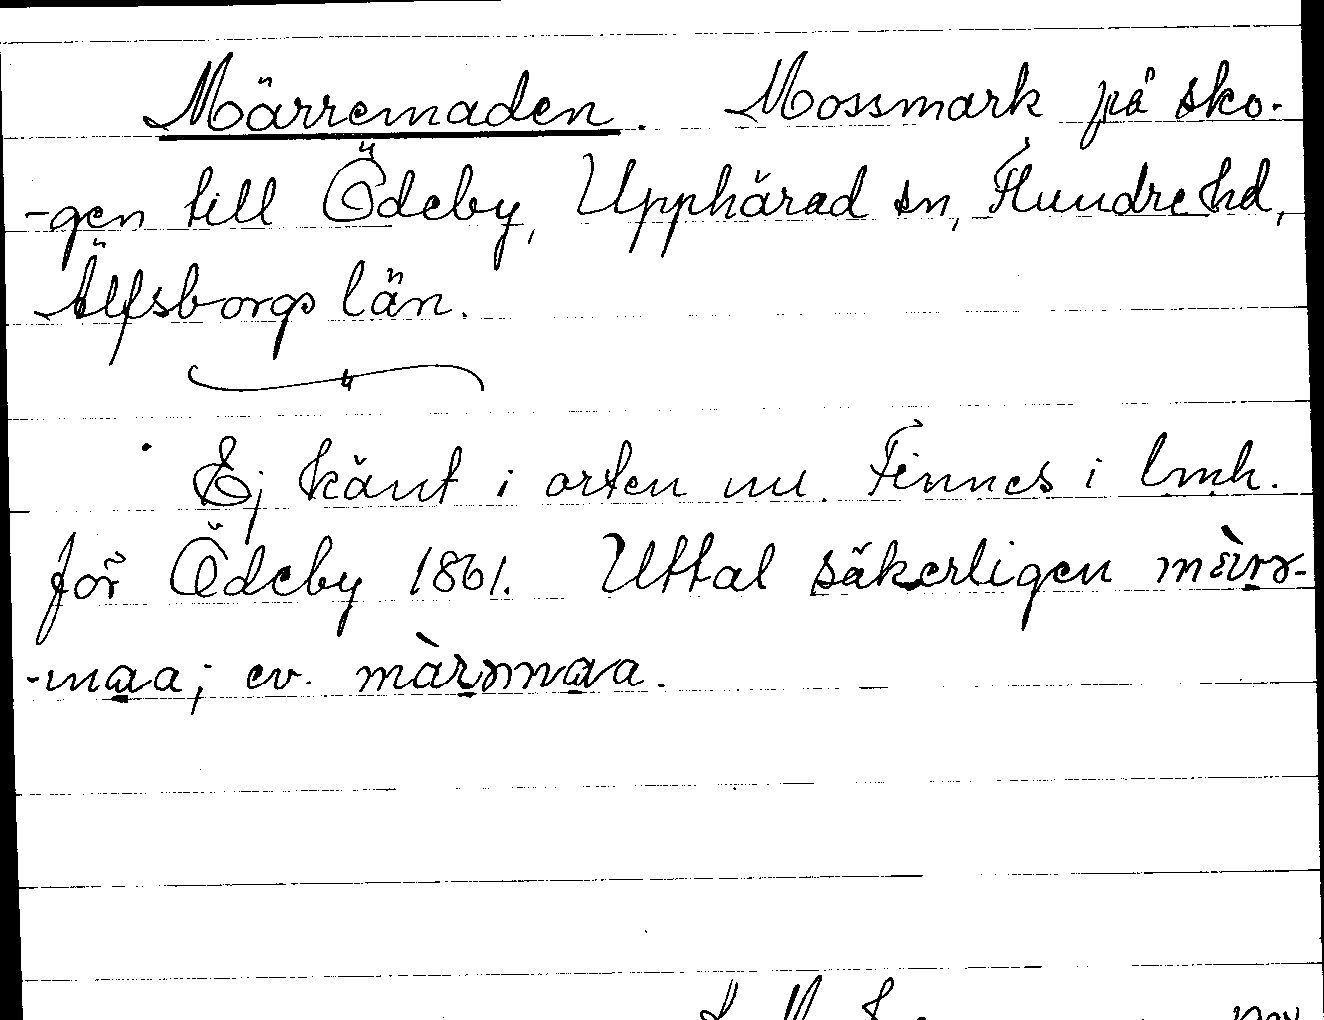 Märremaden. Mossmark på sko-
-gen till Ödeby, Upphärad sn, Flundre hd,
Älfsborgs län.
Ej känt i orten nu. Finnes i lmh.
för Ödeby 1861. Uttal säkerligen
-maa; ev.